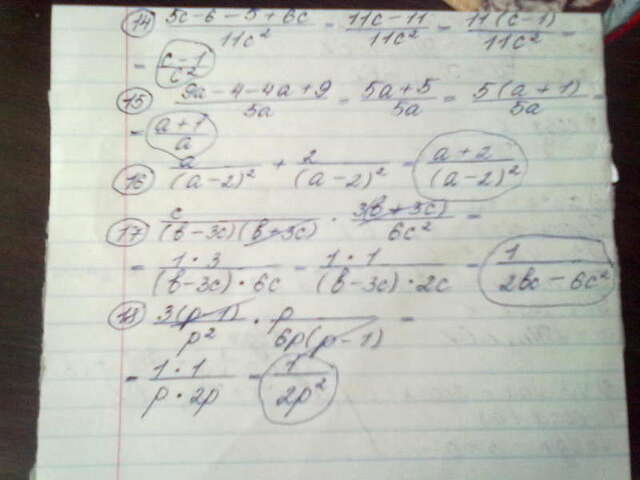 14 (5c-6-5+6c)/(11c²) = (11c-11)/(11c²) = (11(c-1))/(11c²) =
= (c-1)/(c²)
15 (9a-4-4a+9)/(5a) = (5a+5)/(5a) = (5(a+1))/(5a) =
= (a+1)/a
16 a/((a-2)²) + 2/((a-2)²) = (a+2)/((a-2)²)
17 c/((в-3c)(в+3c)) · (3(в+3c))/(6c²) =
= (1·3)/((в-3c)·6c) = (1·1)/((в-3c)·2c) = 1/(2вc-6c²)
18 (3(p-1))/(p²) · p/(6p(p-1)) =
= (1·1)/(p·2p) = 1/(2p²)